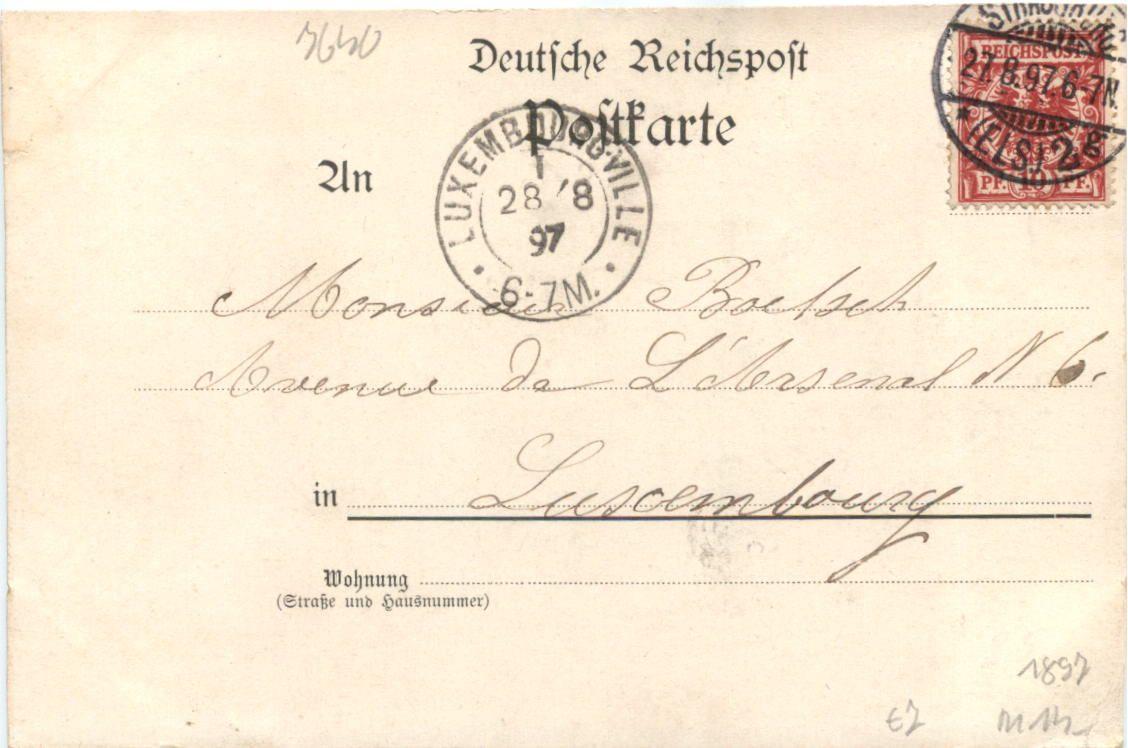 3640
Deutsche Reichspost
Postkarte
An
STRASSBURG
27.8.97.6-7N.
* (ELS.) 2 g
REICHSPOST
PF. 10 PF.
LUXEMBOURG-VILLE
1
28/8
97
6-7M.
Monsieur Boetsch
Avenue de L'Arsenal N 6.
in Luxembourg
Wohnung
(Straße und Hausnummer)
1897